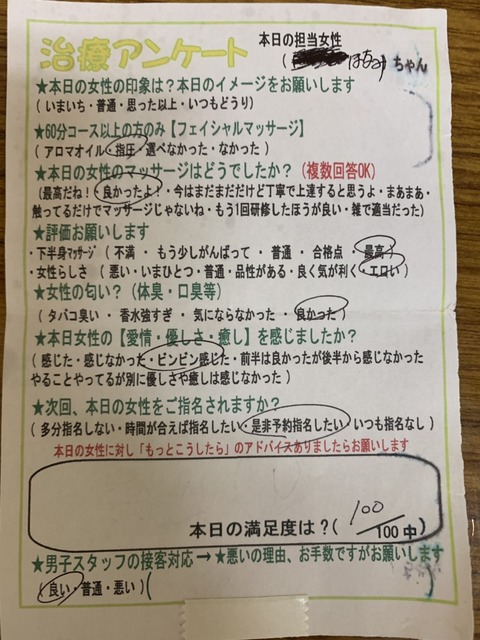 治療アンケート
本日の担当女性
( はちみ ちゃん
★本日の女性の印象は?本日のイメージをお願いします
( いまいち・普通・思った以上・いつもどうり )
★60分コース以上の方のみ【フェイシャルマッサージ】
( アロマオイル・指圧・選べなかった・なかった )
★本日の女性のマッサージはどうでしたか? (複数回答OK)
(最高だね!・良かったよ!・今はまだまだだけど丁寧で上達すると思うよ・まあまあ・
触ってるだけでマッサージじゃないね・もう1回研修したほうが良い・雑で適当だった)
★評価お願いします
・下半身マッサージ ( 不満 ・ もう少しがんばって ・ 普通 ・ 合格点 ・ 最高 )
・女性らしさ ( 悪い・いまひとつ・普通・品性がある・良く気が利く・エロい )
★女性の匂い? (体臭・口臭等)
( タバコ臭い ・ 香水強すぎ ・ 気にならなかった ・ 良かった )
★本日女性の【愛情・優しさ・癒し】を感じましたか?
( 感じた・感じなかった・ビンビン感じた・前半は良かったが後半から感じなかった
やることやってるが別に優しさや癒しは感じなかった )
★次回、本日の女性をご指名されますか?
( 多分指名しない・時間が合えば指名したい・是非予約指名したい・いつも指名なし )
本日の女性に対し「もっとこうしたら」のアドバイスありましたらお願いします
本日の満足度は?( 100/100中 )
★男子スタッフの接客対応 → ★悪いの理由、お手数ですがお願いします
( 良い・普通・悪い )(